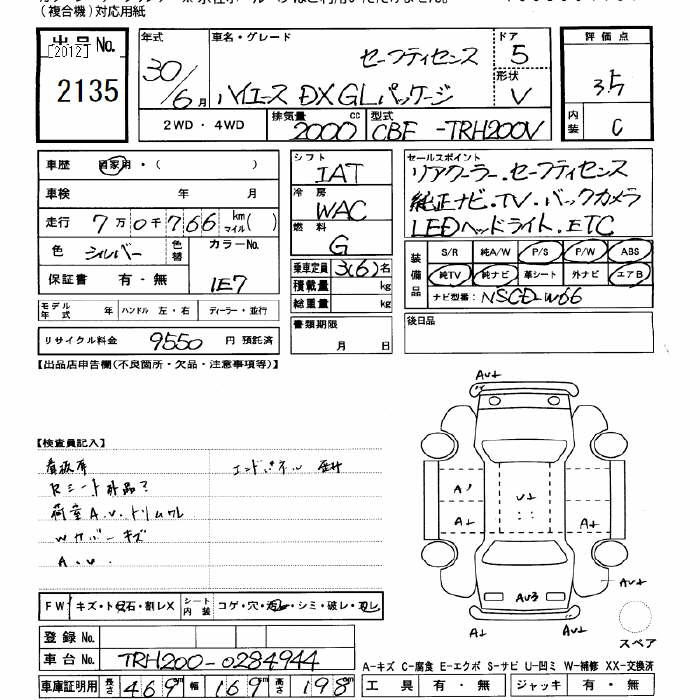 (複合機)対応用紙
出品No.
[2012]
2135
年式
30/6月
車名・グレード
セーフティセンス
ハイエース DX GLパッケージ
ドア
5
形状
V
評価点
3.5
内装
C
2WD・4WD
排気量
2000
cc
型式
CBF -TRH200V
車歴
自家用・( )
車検 年 月
走行 7万0千766 km マイル( )
色 シルバー
色替
カラーNo.
1E7
保証書 有・無
モデル年式 年
ハンドル 左・右
ディーラー・並行
リサイクル料金 9550 円 預託済
シフト
IAT
冷房
WAC
燃料
G
乗車定員 3(6)名
積載量 kg
総重量 kg
書類期限
月 日
セールスポイント
リアクーラー.セーフティセンス
純正ナビ.TV.バックカメラ
LEDヘッドライト.ETC
装備品
S/R 純A/W P/S P/W ABS
純TV 純ナビ 革シート 外ナビ エアB
ナビ型番: NSCD-W66
後日品
【出品店申告欄(不良箇所・欠品・注意事項等)】
【検査員記入】
看板庫
Rシート外品?
荷室A.U.トリムワレ
Wカバーキズ
A.U.
エンドパネル
AU±
A'
A±
U±
A±
AU±
AU3
A±
AU±
スペア
FW
キズ・ト石・割レX
シート内装
コゲ・穴・汚レ・シミ・破レ・切レ
登録No.
車台No. TRH200-0284944
車庫証明用 長さ 469cm 幅 169cm 高さ 198cm
A-キズ C-腐食 E-エクボ S-サビ U-凹ミ W-補修 XX-交換済
工具 有・無
ジャッキ 有・無